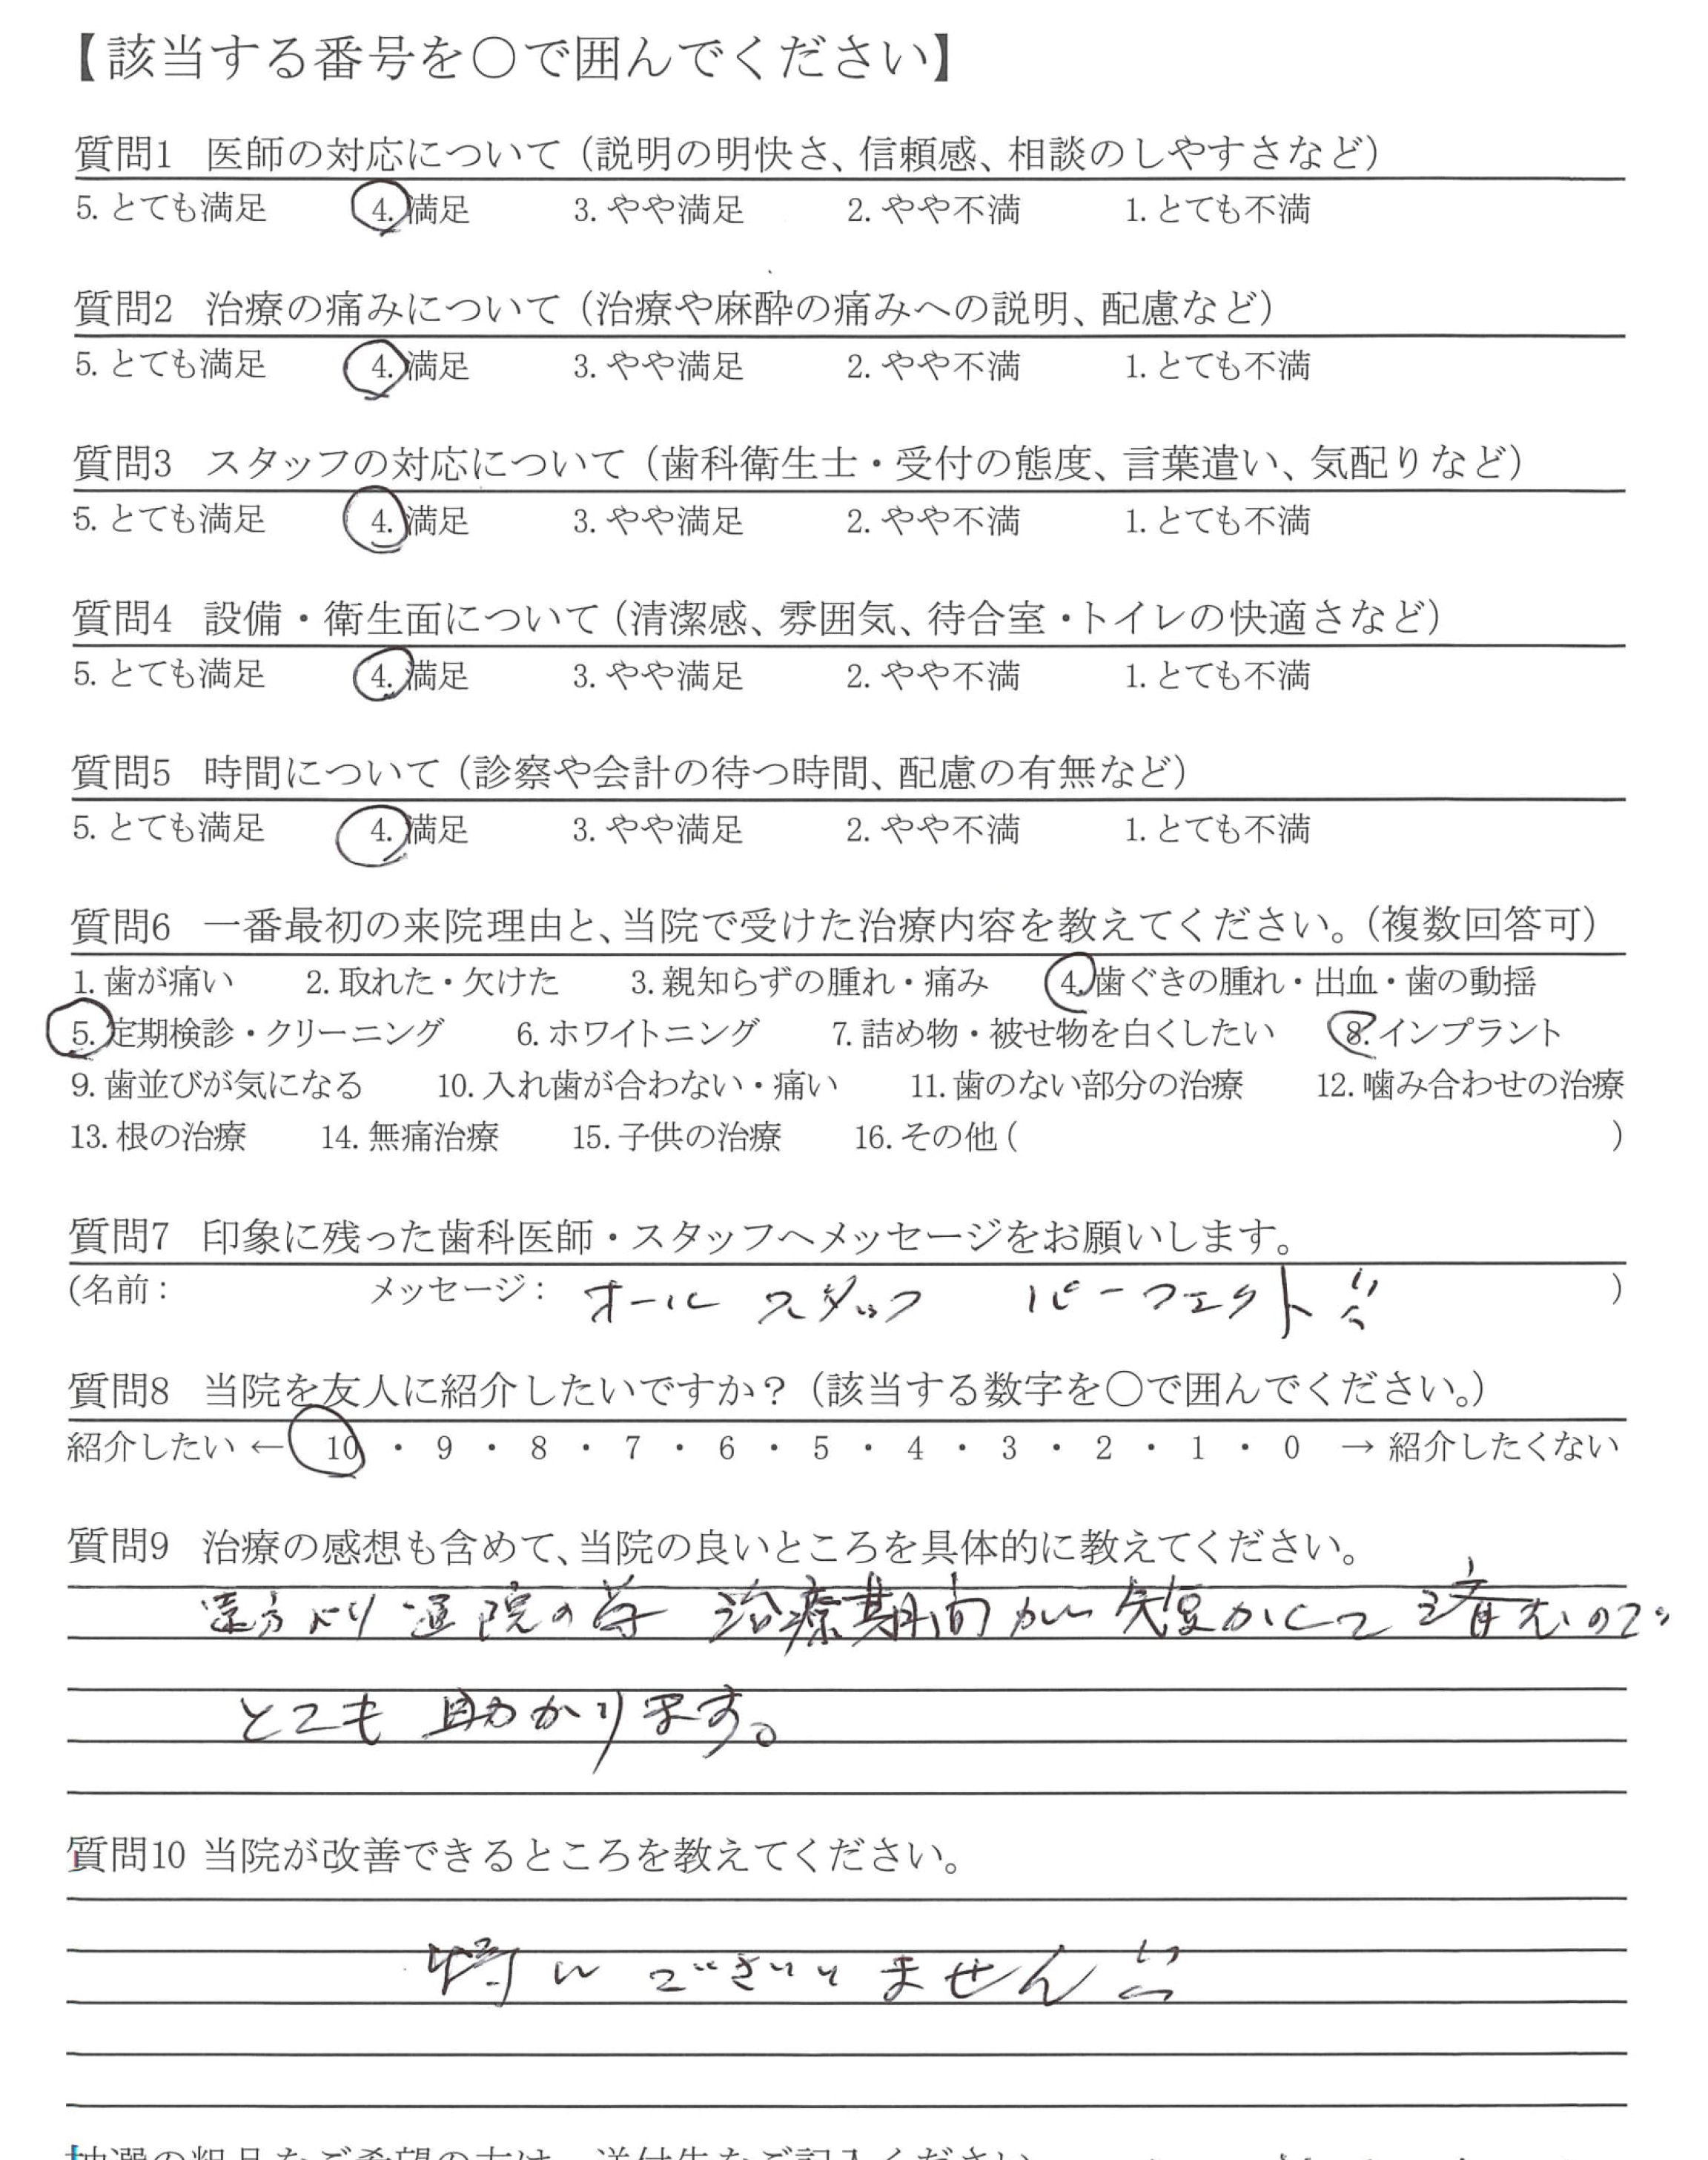 【該当する番号を〇で囲んでください】
質問1 医師の対応について（説明の明快さ、信頼感、相談のしやすさなど）
5. とても満足 4. 満足 3. やや満足 2. やや不満 1. とても不満
質問2 治療の痛みについて（治療や麻酔の痛みへの説明、配慮など）
5. とても満足 4. 満足 3. やや満足 2. やや不満 1. とても不満
質問3 スタッフの対応について（歯科衛生士・受付の態度、言葉遣い、気配りなど）
5. とても満足 4. 満足 3. やや満足 2. やや不満 1. とても不満
質問4 設備・衛生面について（清潔感、雰囲気、待合室・トイレの快適さなど）
5. とても満足 4. 満足 3. やや満足 2. やや不満 1. とても不満
質問5 時間について（診察や会計の待つ時間、配慮の有無など）
5. とても満足 4. 満足 3. やや満足 2. やや不満 1. とても不満
質問6 一番最初の来院理由と、当院で受けた治療内容を教えてください。（複数回答可）
1. 歯が痛い 2. 取れた・欠けた 3. 親知らずの腫れ・痛み 4. 歯ぐきの腫れ・出血・歯の動揺
5. 定期検診・クリーニング 6. ホワイトニング 7. 詰め物・被せ物を白くしたい 8. インプラント
9. 歯並びが気になる 10. 入れ歯が合わない・痛い 11. 歯のない部分の治療 12. 噛み合わせの治療
13. 根の治療 14. 無痛治療 15. 子供の治療 16. その他（ ）
質問7 印象に残った歯科医師・スタッフへメッセージをお願いします。
(名前： メッセージ： オール スタッフ パーフェクト !! )
質問8 当院を友人に紹介したいですか？（該当する数字を〇で囲んでください。）
紹介したい ← 10 ・ 9 ・ 8 ・ 7 ・ 6 ・ 5 ・ 4 ・ 3 ・ 2 ・ 1 ・ 0 → 紹介したくない
質問9 治療の感想も含めて、当院の良いところを具体的に教えてください。
遠方より通院の為 治療期間が短かくて済むので
とても助かります。
質問10 当院が改善できるところを教えてください。
特にございません!!
抽選の粗品をご希望の方は、送付先をご記入ください